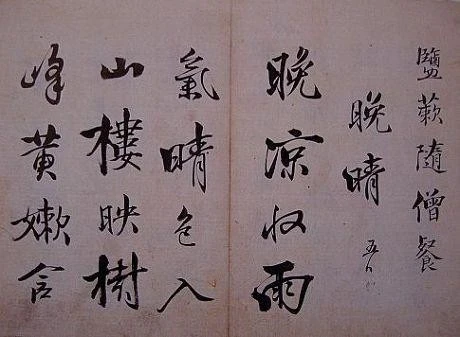 鹽蔌隨僧餐
晚晴 五
晚凉收雨
氣晴色入
山樓映樹
峰黃嫩含